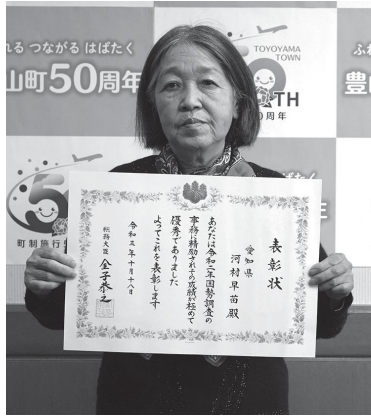 れる つながる はばたく
山町50周年
TOYOYAMA
TOWN
TH
0周年
ふれ
豊山
町制施行5
表彰状
愛知県
河村早苗殿
あなたは令和二年国勢調査の
事務に精励されその成績が極めて
優秀でありました
よってこれを表彰します
令和三年十月十八日
総務大臣 金子恭之